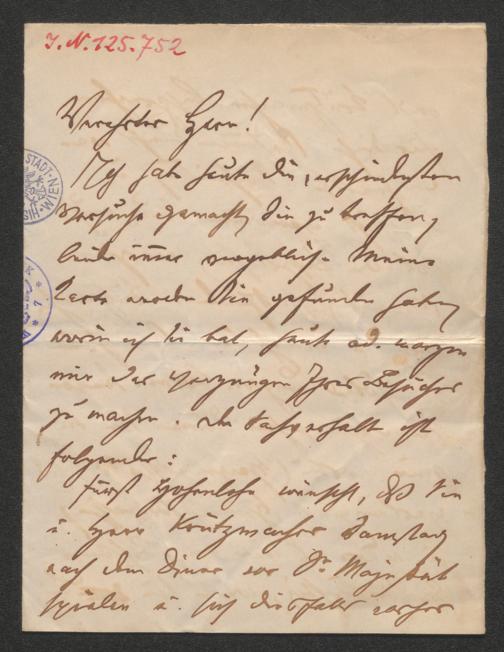 I. N. 125.752
Verehrter Herr!
Ich habe heute die
Versuche gemacht, Sie zu treffen,
leider immer vergeblich. Meine
Karte werden Sie gefunden haben,
worin ich Sie bat, heute od. morgen
mir das Vergnügen Ihres Besuches
zu machen. Der Sachverhalt ist
folgender:
Fürst Hohenlohe wünscht, daß Sie
u. Herr Krützmacher Samstag
nach dem Diner vor Sr Majestät
spielen u. sich diesfalls vorher
STADT
WIEN